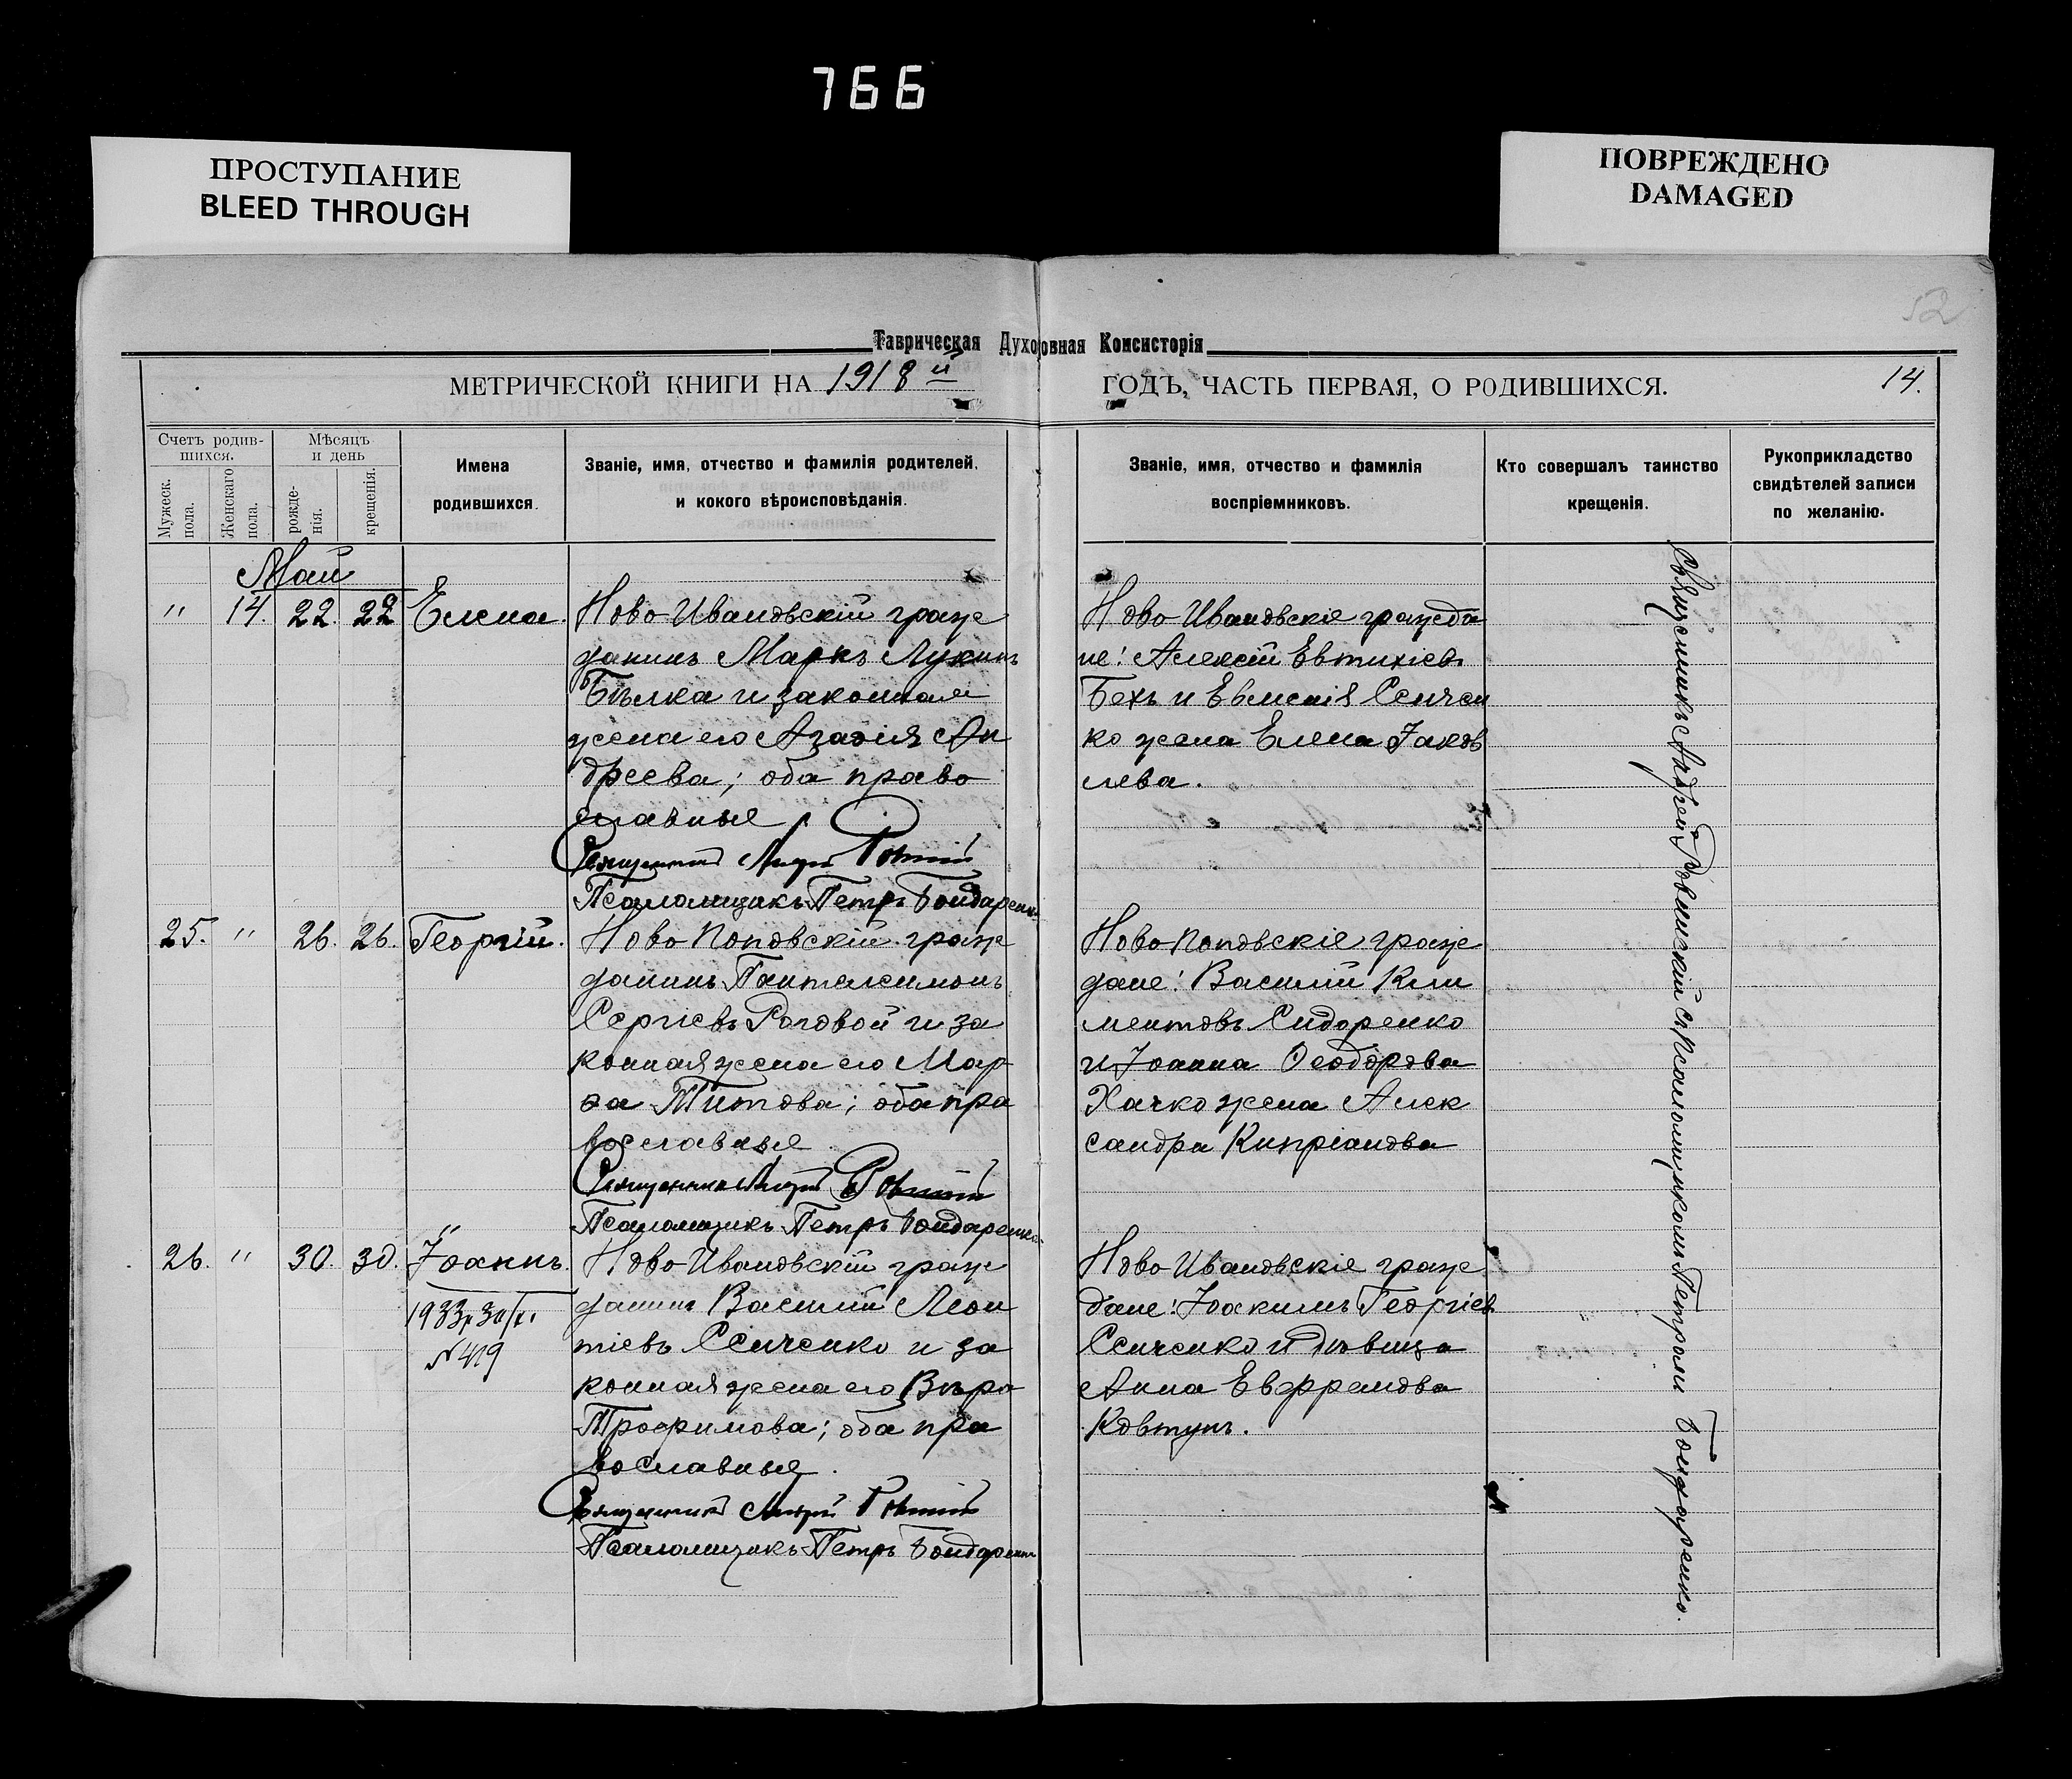 766
ПРОСТУПАНИЕ
BLEED THROUGH
ПОВРЕЖДЕНО
DAMAGED
52
Таврическая Духовная Консисторія
МЕТРИЧЕСКОЙ КНИГИ НА 1918й
ГОДЪ, ЧАСТЬ ПЕРВАЯ, О РОДИВШИХСЯ.
14.
Счетъ родив-
шихся.
Мужеск.
пола.
Женскаго
пола.
Мѣсяцъ
и день
рожде-
нія.
крещенія.
Имена
родившихся.
Званіе, имя, отчество и фамилія родителей,
и кокого вѣроисповѣданія.
Званіе, имя, отчество и фамилія
воспріемниковъ.
Кто совершалъ таинство
крещенія.
Рукоприкладство
свидѣтелей записи
по желанію.
Май
" 14. 22. 22 Елена.
Ново-Ивановскій граж
данинъ Маркъ Лукинъ
Бѣлка и законная
жена его Агафія Ан
дреева; оба право
славные
Священникъ Андрей Ровинскій
Псаломщикъ Петръ Бондаренко
Ново-Ивановскіе гражда
не: Алексій Евтихіевъ
Бехъ и Евменія Сенчен
ко жена Елена Іаков
лева.
25. " 26. 26. Георгій.
Ново-Поповскій граж
данинъ Пантелеимонъ
Сергіевъ Роговой и за
конная жена его Мар
ѳа Титова; оба пра
вославные
Священникъ Андрей Ровинскій
Псаломщикъ Петръ Бондаренко
Ново-Поповскіе граж
дане: Василій Кли
ментовъ Сидоренко
и Іоанна Ѳеодорова
Хачко жена Алек
сандра Кипріанова
26. " 30. 30. Іоаннъ.
1933
№ 419
Ново-Ивановскій граж
данинъ Василій Леон
тіевъ Сенченко и за
конная жена его Вѣра
Трофимова; оба пра
вославные.
Священникъ Андрей Ровинскій
Псаломщикъ Петръ Бондаренко
Ново-Ивановскіе граж
дане: Іоакимъ Георгіев
Сенченко и дѣвица
Анна Евфранова
Ковтунъ.
Священникъ Андрей Ровинскій съ Псаломщикомъ Петромъ Бондаренко.